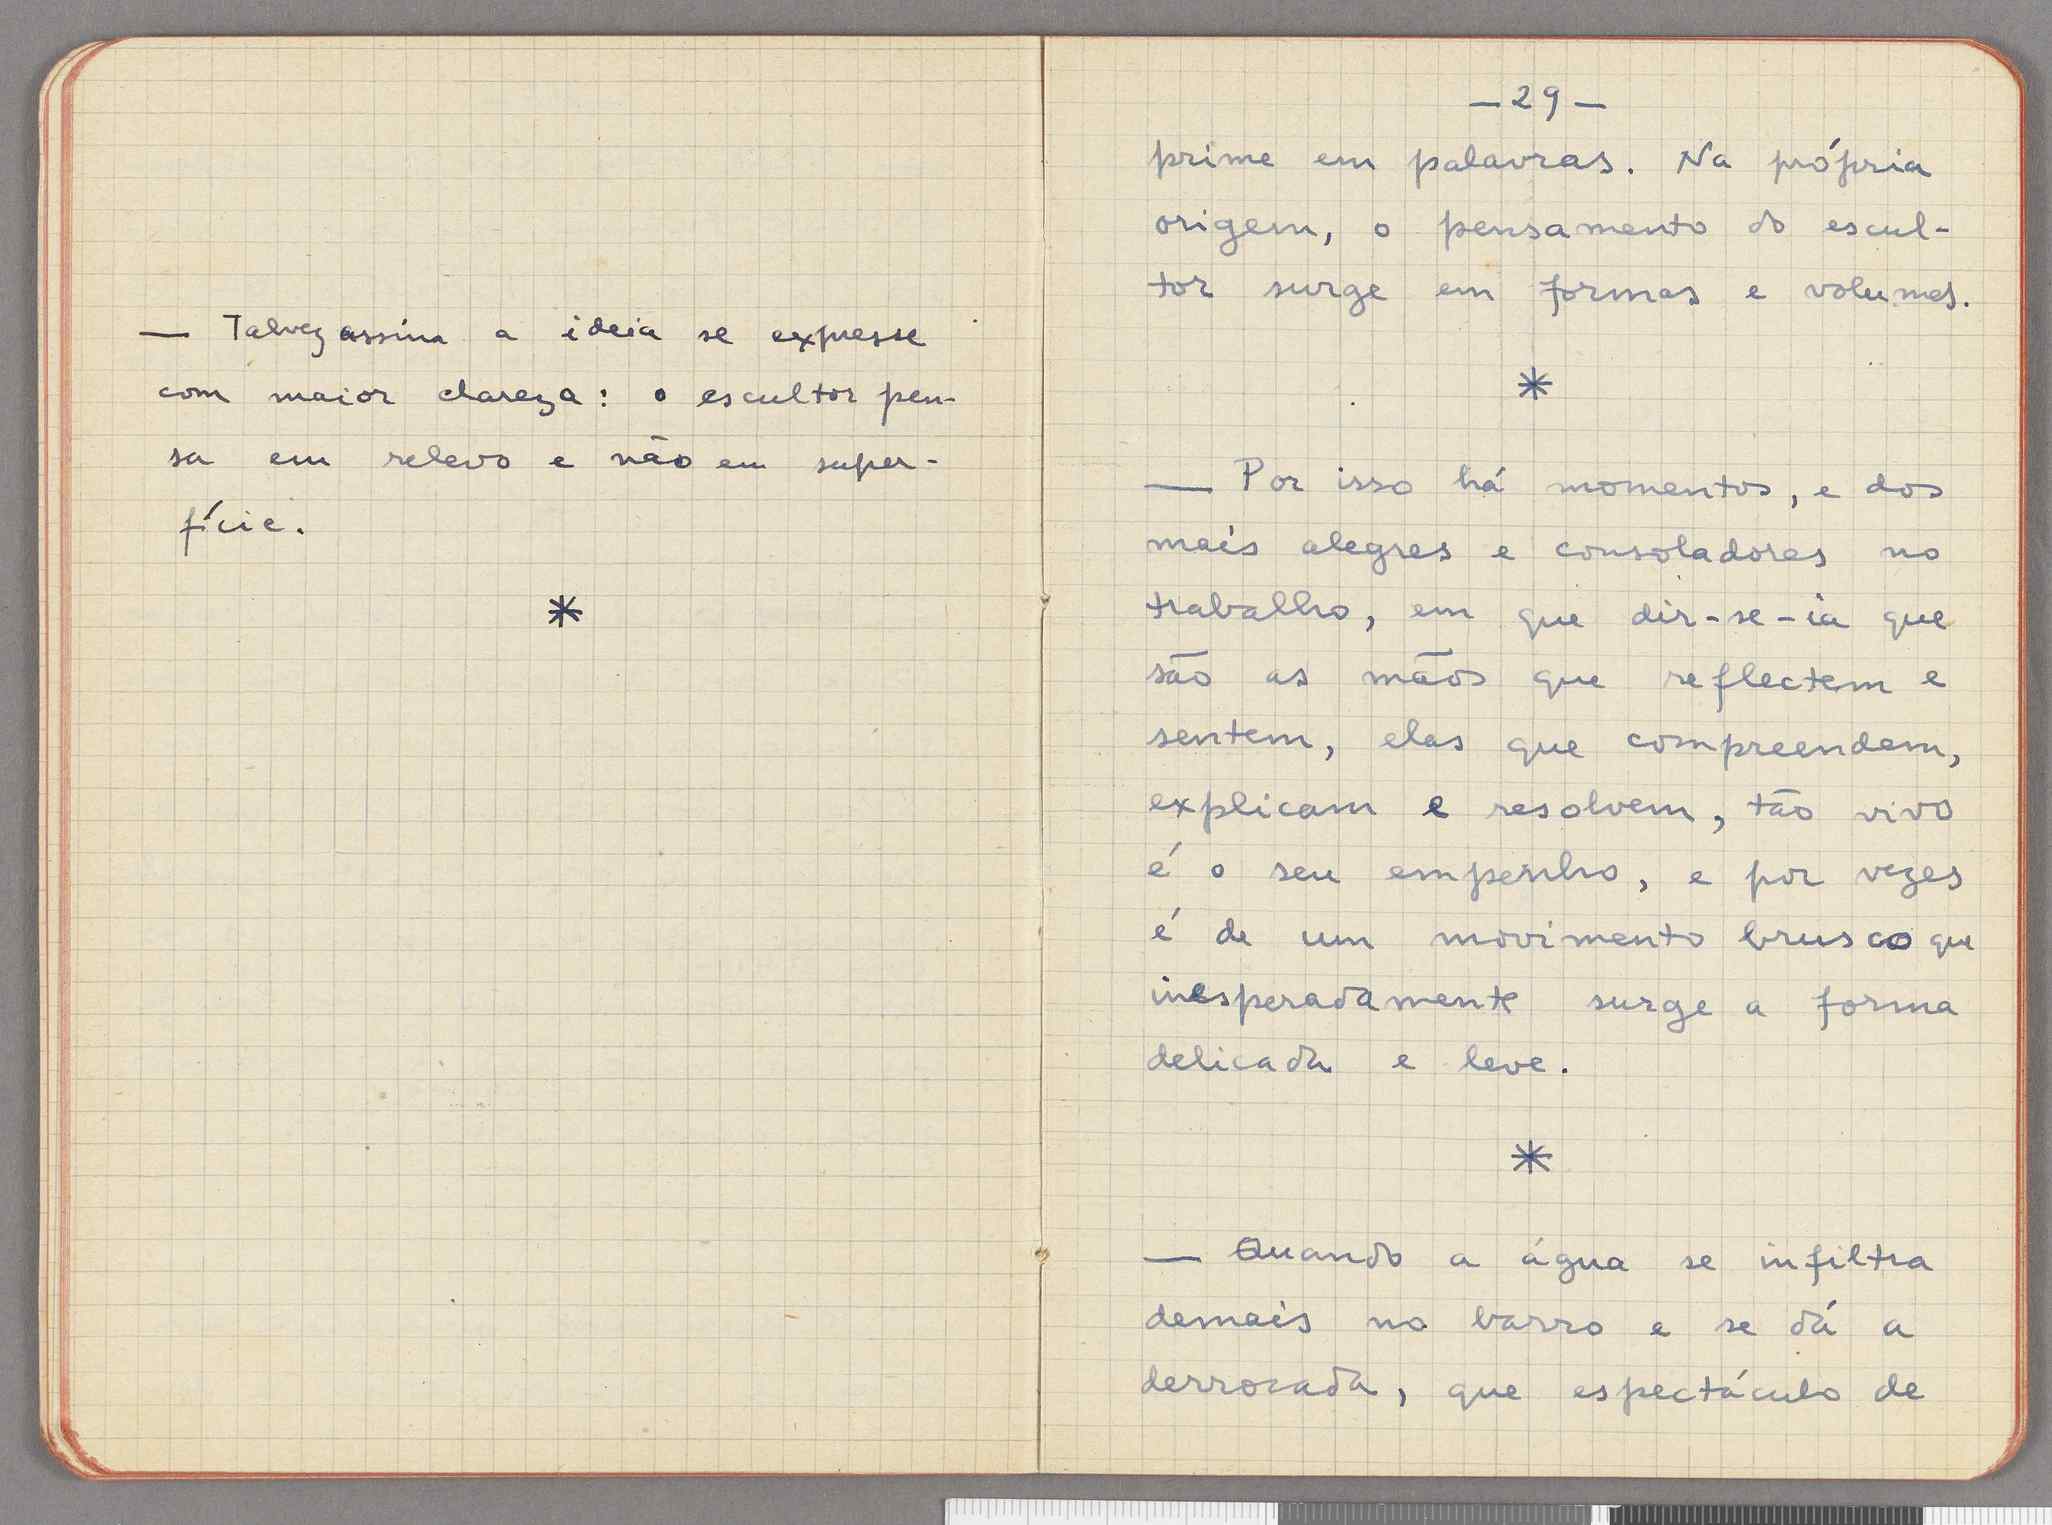 — Talvez assim a ideia se expresse
com maior clareza: o escultor pen-
sa em relevo e não em super-
fície.
*
— 29 —
prime em palavras. Na própria
origem, o pensamento do escul-
tor surge em formas e volumes.
*
— Por isso há momentos, e dos
mais alegres e consoladores no
trabalho, em que dir-se-ia que
são as mãos que reflectem e
sentem, elas que compreendem,
explicam e resolvem, tão vivo
é o seu empenho, e por vezes
é de um movimento brusco que
inesperadamente surge a forma
delicada e leve.
*
— Quando a água se infiltra
demais no barro e se dá a
derrocada, que espectáculo de